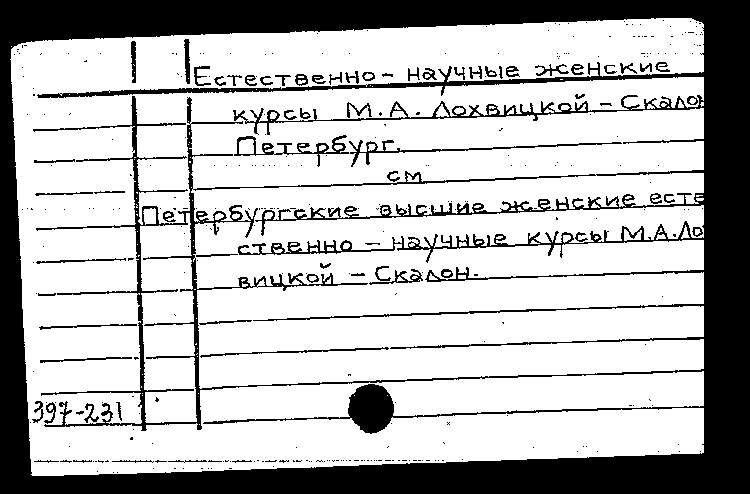 Естественно - научные женские
курсы М.А. Лохвицкой - Скалон
Петербург.
см
Петербургские высшие женские есте
ственно - научные курсы М.А. Ло
вицкой - Скалон.
397-231